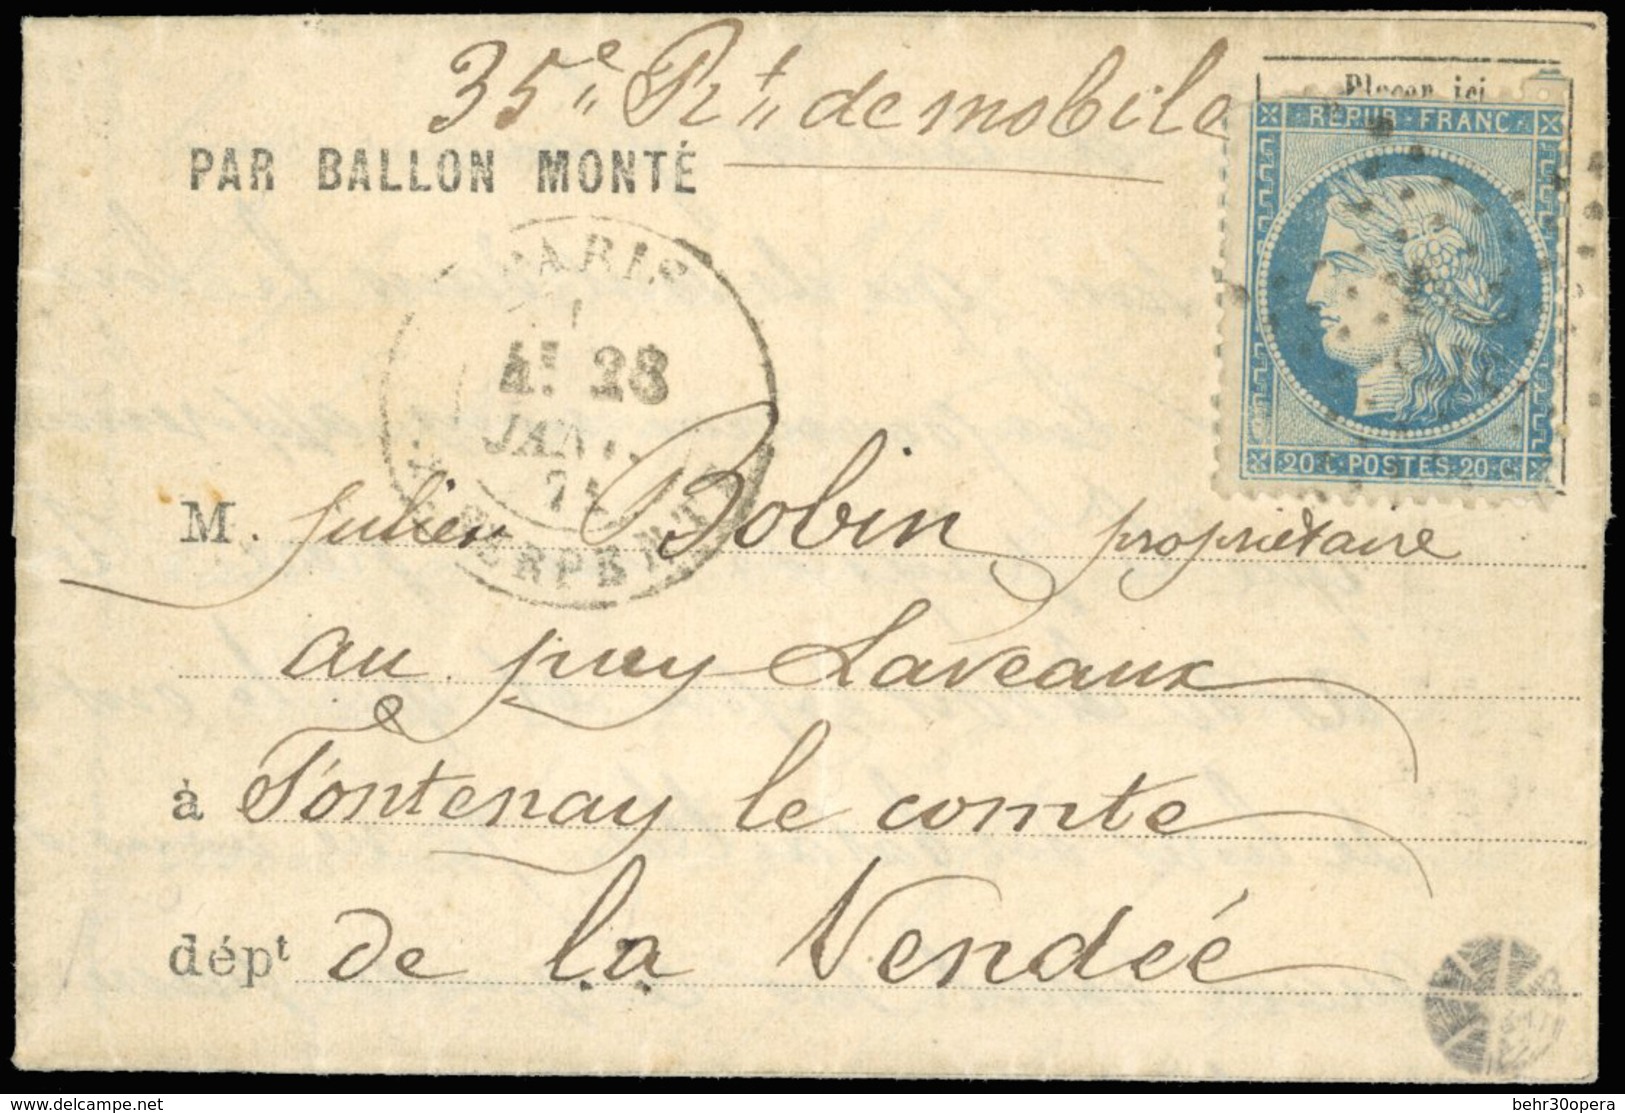 35e Rt de mobile
PAR BALLON MONTÉ
Placer ici
REPUB · FRANC
20 · C · POSTES · 20 · C ·
PARIS
28
JANV.
71
SERPENTE
M. Julien Bobin propriétaire
au puy Laveaux
à Fontenay le comte
dépt de la Vendée
delcampe.net
behr30opera